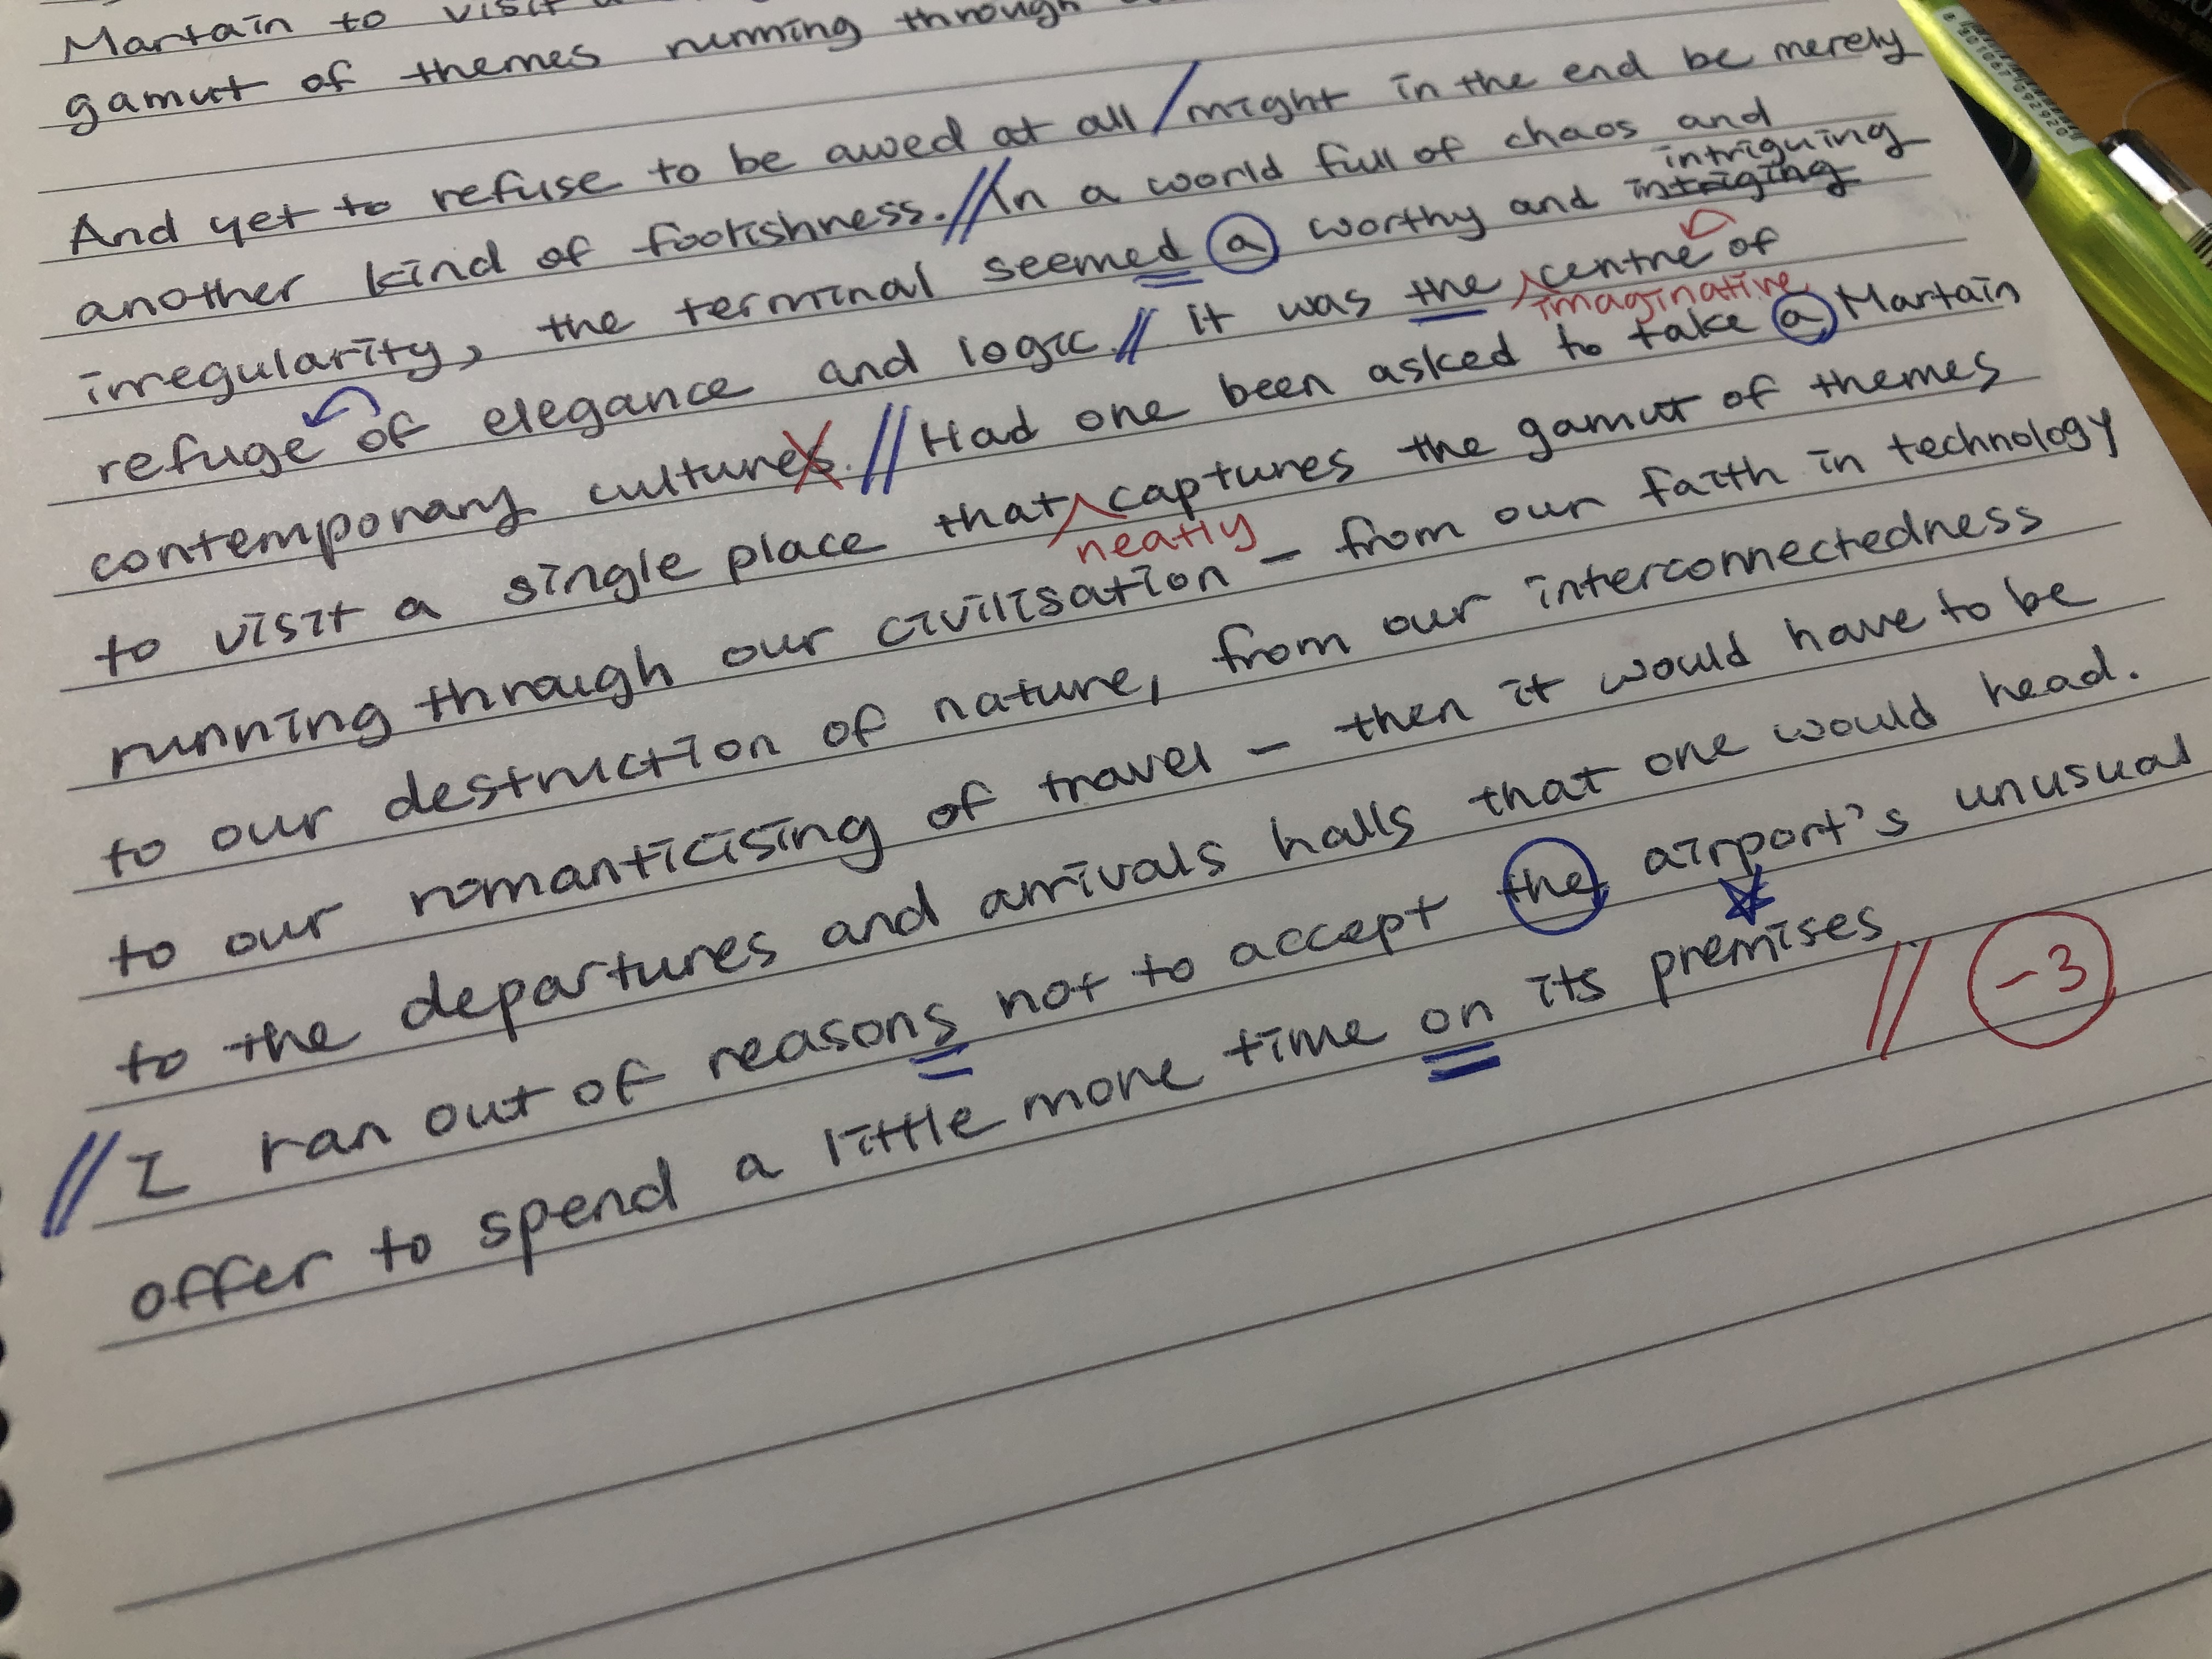 Martain to visit a
gamut of themes running through
And yet to refuse to be awed at all / might in the end be merely
another kind of foolishness. // In a world full of chaos and
irregularity, the terminal seemed a worthy and intriging intriguing
refuge of elegance and logic. // it was the imaginative centre of
contemporary cultures. // Had one been asked to take a Martain
to visit a single place that neatly captures the gamut of themes
running through our civilisation – from our faith in technology
to our destruction of nature, from our interconnectedness
to our romanticising of travel – then it would have to be
to the departures and arrivals halls that one would head.
// I ran out of reasons not to accept the airport's unusual
offer to spend a little more time on its premises // -3